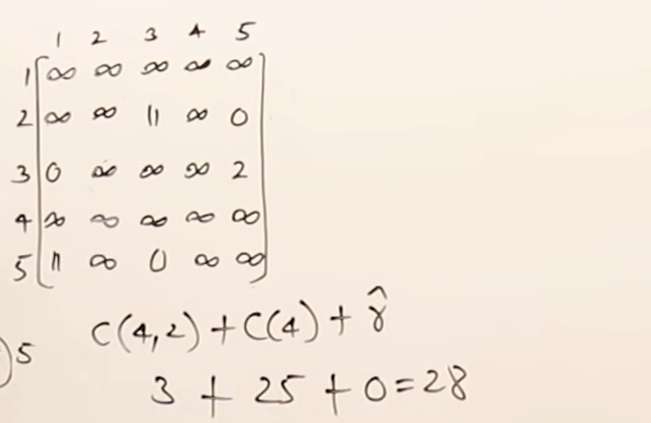 1 2 3 4 5
1 ∞ ∞ ∞ ∞ ∞
2 ∞ ∞ 11 ∞ 0
3 0 ∞ ∞ ∞ 2
4 ∞ ∞ ∞ ∞ ∞
5 11 ∞ 0 ∞ ∞
C(4,2) + C(4) + r̂
5
3 + 25 + 0 = 28